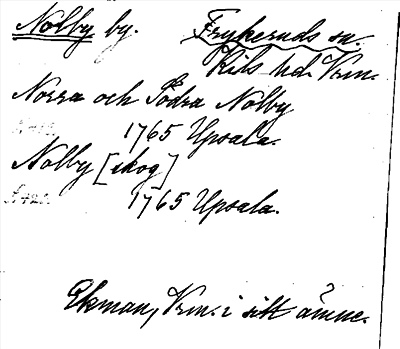 Nolby by. Frykeruds sn.
Kils hd. Vrm.
Norra och Södra Nolby
1765 Upsala.
Nolby [skog]
1765 Upsala.
Ekman, Vrm. i sitt ämne.